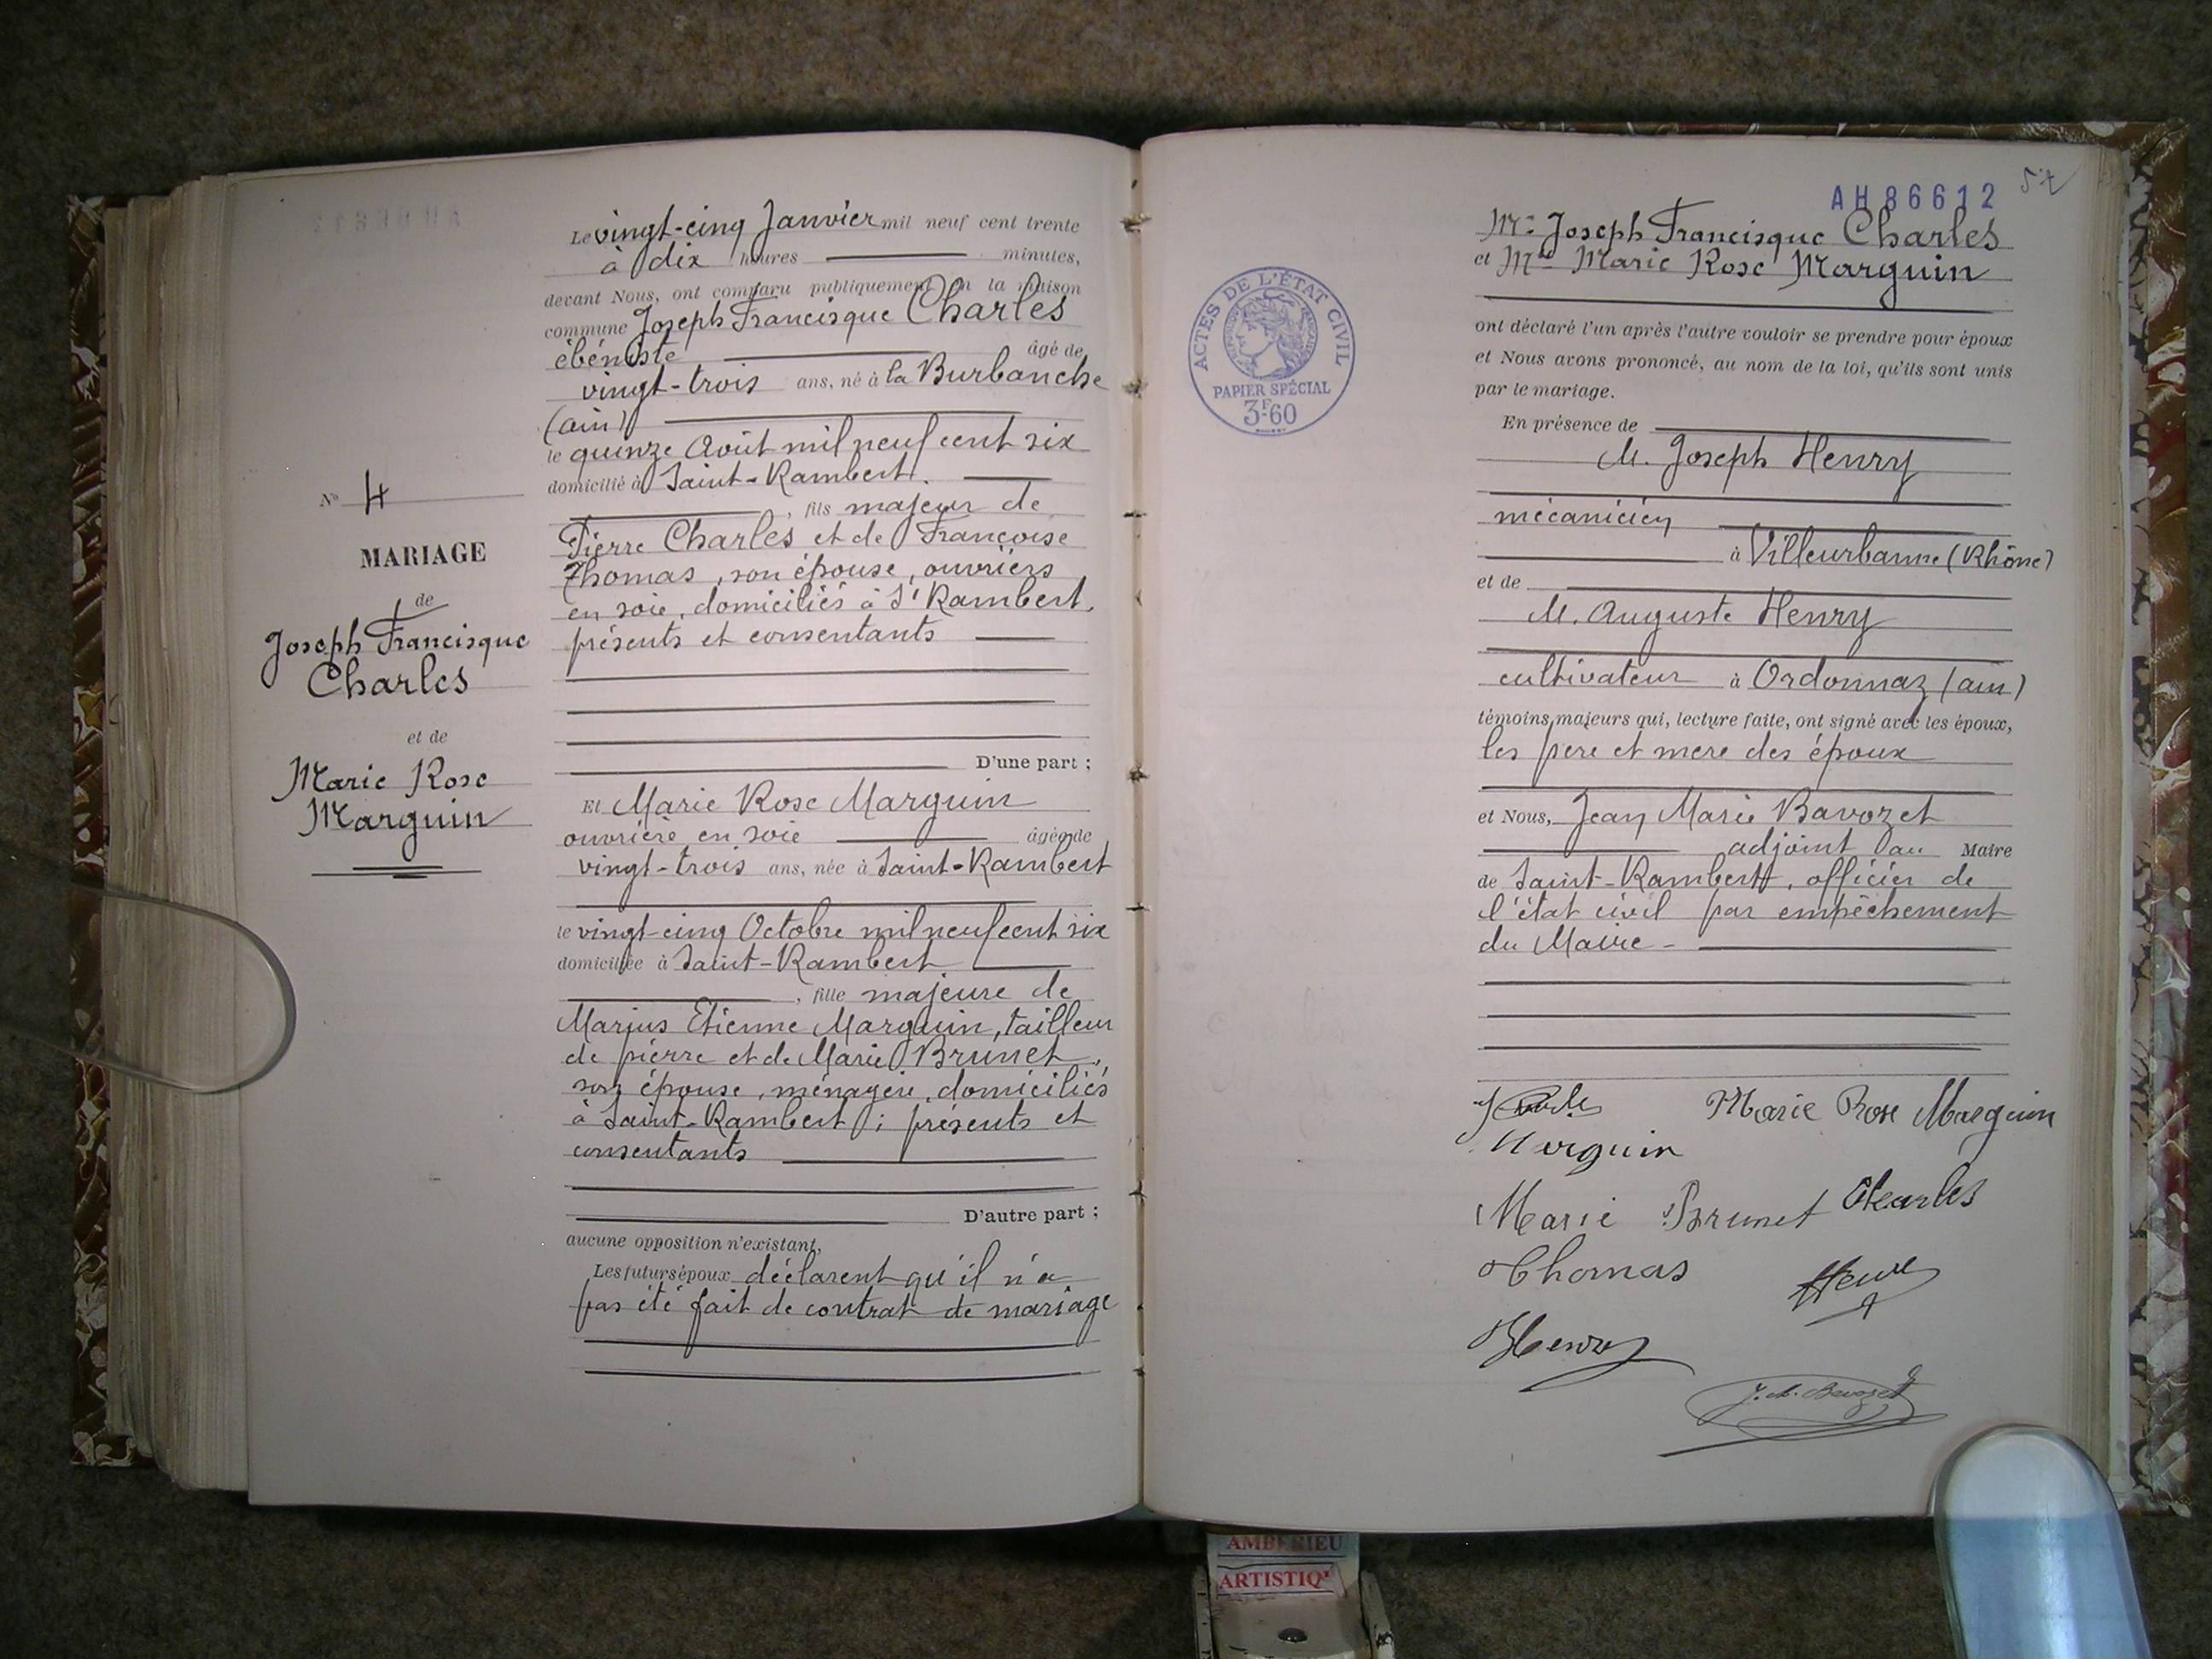 Le vingt-cinq Janvier mil neuf cent trente
à dix heures minutes,
devant Nous, ont comparu publiquement en la maison
commune Joseph Francisque Charles
ébéniste âgé de
vingt-trois ans, né à la Burbanche
(ain)
le quinze Août mil neuf cent six
domicilié à Saint-Rambert.
, fils majeur de
Pierre Charles et de Françoise
Thomas, son épouse, ouvriers
en soie, domiciliés à St Rambert,
présents et consentants
D'une part ;
Et Marie Rose Marguin
ouvrière en soie âgée de
vingt-trois ans, née à Saint-Rambert
le vingt-cinq Octobre mil neuf cent six
domiciliée à Saint-Rambert
, fille majeure de
Marius Etienne Marguin, tailleur
de pierre et de Marie Brunet,
son épouse, ménagère, domiciliés
à Saint-Rambert ; présents et
consentants
D'autre part ;
aucune opposition n'existant,
Les futurs époux déclarent qu'il n'a
pas été fait de contrat de mariage
N° 4
MARIAGE
de
Joseph Francisque
Charles
et de
Marie Rose
Marguin
AH 86612
Mr Joseph Francisque Charles
et Mlle Marie Rose Marguin
ont déclaré l'un après l'autre vouloir se prendre pour époux
et Nous avons prononcé, au nom de la loi, qu'ils sont unis
par le mariage.
En présence de
M. Joseph Henry
mécanicien
à Villeurbanne (Rhône)
et de
M. Auguste Henry
cultivateur à Ordonnaz (ain)
témoins majeurs qui, lecture faite, ont signé avec les époux,
les père et mère des époux
et Nous, Jean Marie Bavozet
adjoint au Maire
de Saint-Rambert, officier de
l'état civil par empêchement
du Maire -
ACTES DE L'ÉTAT CIVIL
PAPIER SPÉCIAL
3F.60
Marie Rose Marguin
Marguin
Marie Brunet Charles
Thomas
Henry
J. M. Bavozet
AMBERIEU
ARTISTIQ